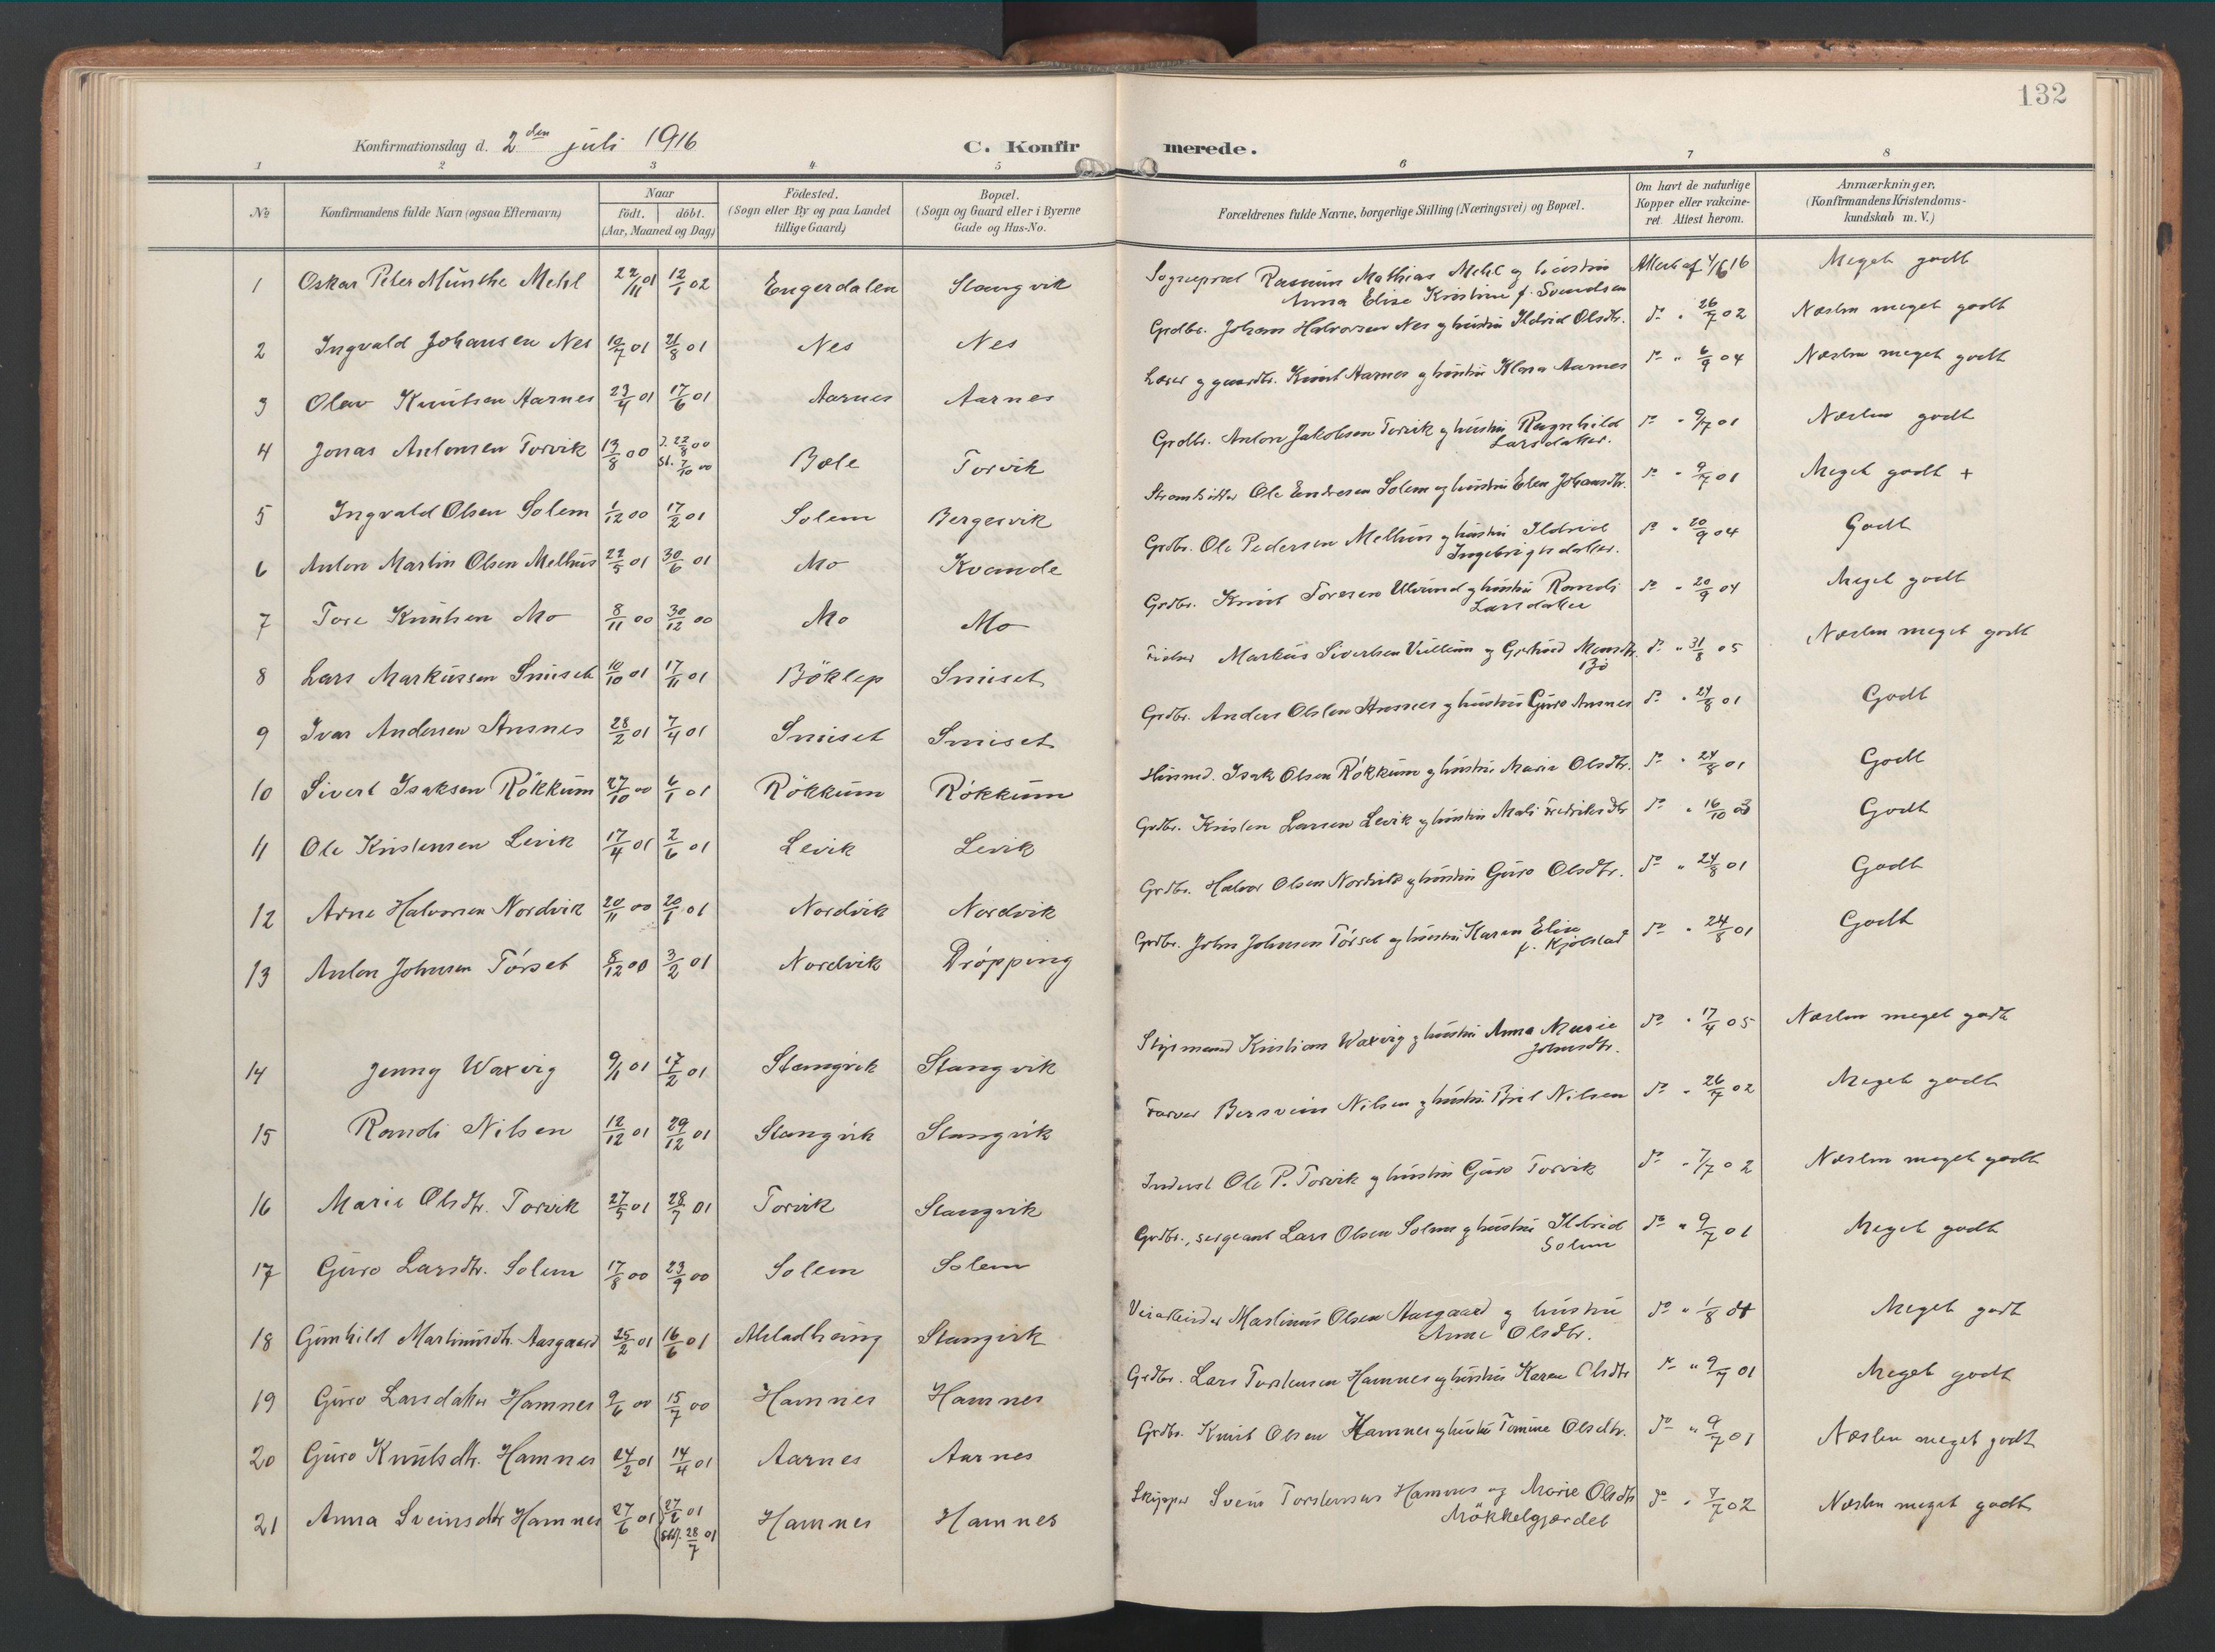 132
Konfirmationsdag d. 2den juli 1916
C. Konfirmerede.
1 2 3 4 5 6 7 8
No
Konfirmandens fulde Navn (ogsaa Efternavn)
Naar
födt. döbt.
(Aar, Maaned og Dag)
Födested.
(Sogn eller By og paa Landet
tillige Gaard)
Bopæl.
(Sogn og Gaard eller i Byerne
Gade og Hus-No.
Forældrenes fulde Navne, borgerlige Stilling (Næringsvei) og Bopæl.
Om havt de naturlige
Kopper eller vakcine-
ret. Attest herom.
Anmærkninger.
(Konfirmandens Kristendoms-
kundskab m. V.)
1 Oskar Peter Münthe Mehl 22/11 01 12/1 02 Engerdalen Stangvik Sogneprest Rasmus Mathias Mehl og hustru Attest af 4/6 16 Meget godt
Anna Elise Kristine f. Svendsen
2 Ingvald Johansen Nes 19/7 01 21/8 01 Nes Nes Grdbr. Johans Halvorsen Nes og hustru Ildrid Olsdtr. do " 26/7 02 Næsten meget godt
3 Olav Knutsen Aarnes 23/4 01 17/6 01 Aarnes Aarnes Lærer og gaardbr. Knut Aarnes og hustru Klara Aarnes do " 6/9 04 Næsten meget godt
4 Jonas Antonsen Torvik 13/8 00 J. 22/8 00 St. 7/10 00 Bæle Torvik Grdbr. Anton Jakobsen Torvik og hustru Ragnhild do " 9/7 01 Næsten godt
Larsdatter.
5 Ingvald Olsen Solem 1/12 00 17/2 01 Solem Bergesvik Strandsidder Ole Endresen Solem og hustru Elen Johansdtr. do " 9/7 01 Meget godt +
6 Anton Martin Olsen Melhus 22/5 01 30/6 01 Mo Kvande Grdbr. Ole Pedersen Melhus og hustru Ildrid do " 20/9 04 Godt
Ingebrigtsdatter.
7 Tore Knutsen Mo 8/11 00 30/12 00 Mo Mo Grdbr. Knut Toresen Ulvund og hustru Randi do " 20/9 04 Meget godt
Larsdatter
8 Lars Markussen Smiset 10/10 01 17/11 01 Böklep Smiset Fisker Markus Sivertsen og Gjertrud do " 31/8 05 Næsten meget godt
Bö
9 Ivar Andersen Ansnes 28/2 01 7/4 01 Smiset Smiset Grdbr. Anders Olsen Ansnes og hustru Guro Ansnes do " 24/8 01 Godt
10 Sivert Isaksen Rökkum 27/10 00 6/1 01 Rökkum Rökkum Husmd. Isak Olsen Rökkum og hustru Marie Olsdtr. do " 24/8 01 Godt
11 Ole Kristensen Levik 17/4 01 2/6 01 Levik Levik Grdbr. Kristen Larsen Levik og hustru Mali Fredriksdtr do " 16/10 03 Godt
12 Arne Halvorsen Nordvik 20/11 00 20/1 01 Nordvik Nordvik Grdbr. Halvor Olsen Nordvik og hustru Guro Olsdtr. do " 24/8 01 Godt
13 Anton Johnsen Törset 8/12 00 3/2 01 Nordvik Dröpping Grdbr. John Johnsen Törset og hustru Karen Elise do " 24/8 01 Godt
f. Kjölstad
14 Jenny Waxvig 9/1 01 17/2 01 Stangvik Stangvik Styrmand Kristian Waxvig og hustru Anna Marie do " 17/4 05 Næsten meget godt
Johnsdtr.
15 Randi Nilsen 12/12 01 29/12 01 Stangvik Stangvik Farver Bersvein Nilsen og hustru Brit Nilsen do " 26/7 02 Meget godt
16 Marie Olsdtr. Torvik 27/5 01 28/7 01 Torvik Stangvik Inderst Ole P. Torvik og hustru Guro Torvik do " 7/7 02 Næsten meget godt
17 Guro Larsdtr. Solem 17/8 00 23/9 00 Solem Solem Grdbr., sergeant Lars Olsen Solem og hustru Ildrid do " 9/7 01 Meget godt
Solem
18 Gunhild Martinusdtr. Aasgaard 25/2 01 16/6 01 Stangvik Veiarbeider Martinus Olsen Aasgaard og hustru do " 1/8 Meget godt
Anne Olsdtr.
19 Guro Larsdatter Hamnes 9/6 00 15/7 00 Hamnes Hamnes Grdbr. Lars Torstensen Hamnes og hustru Karen Olsdtr do " 9/7 01 Meget godt
20 Guro Knutsdtr. Hamnes 24/2 01 14/4 01 Aarnes Aarnes Grdbr. Knut Olsen Hamnes og hustru Tomine Olsdtr. do " 9/7 01 Næsten meget godt
21 Anna Sveinsdtr Hamnes 27/6 01 27/6 01 Stf. 28/7 01 Hamnes Hamnes Skipper Svein Torstensen Hamnes og Marie Olsdtr do " 7/7 02 Næsten meget godt
Mökkelgjerdet